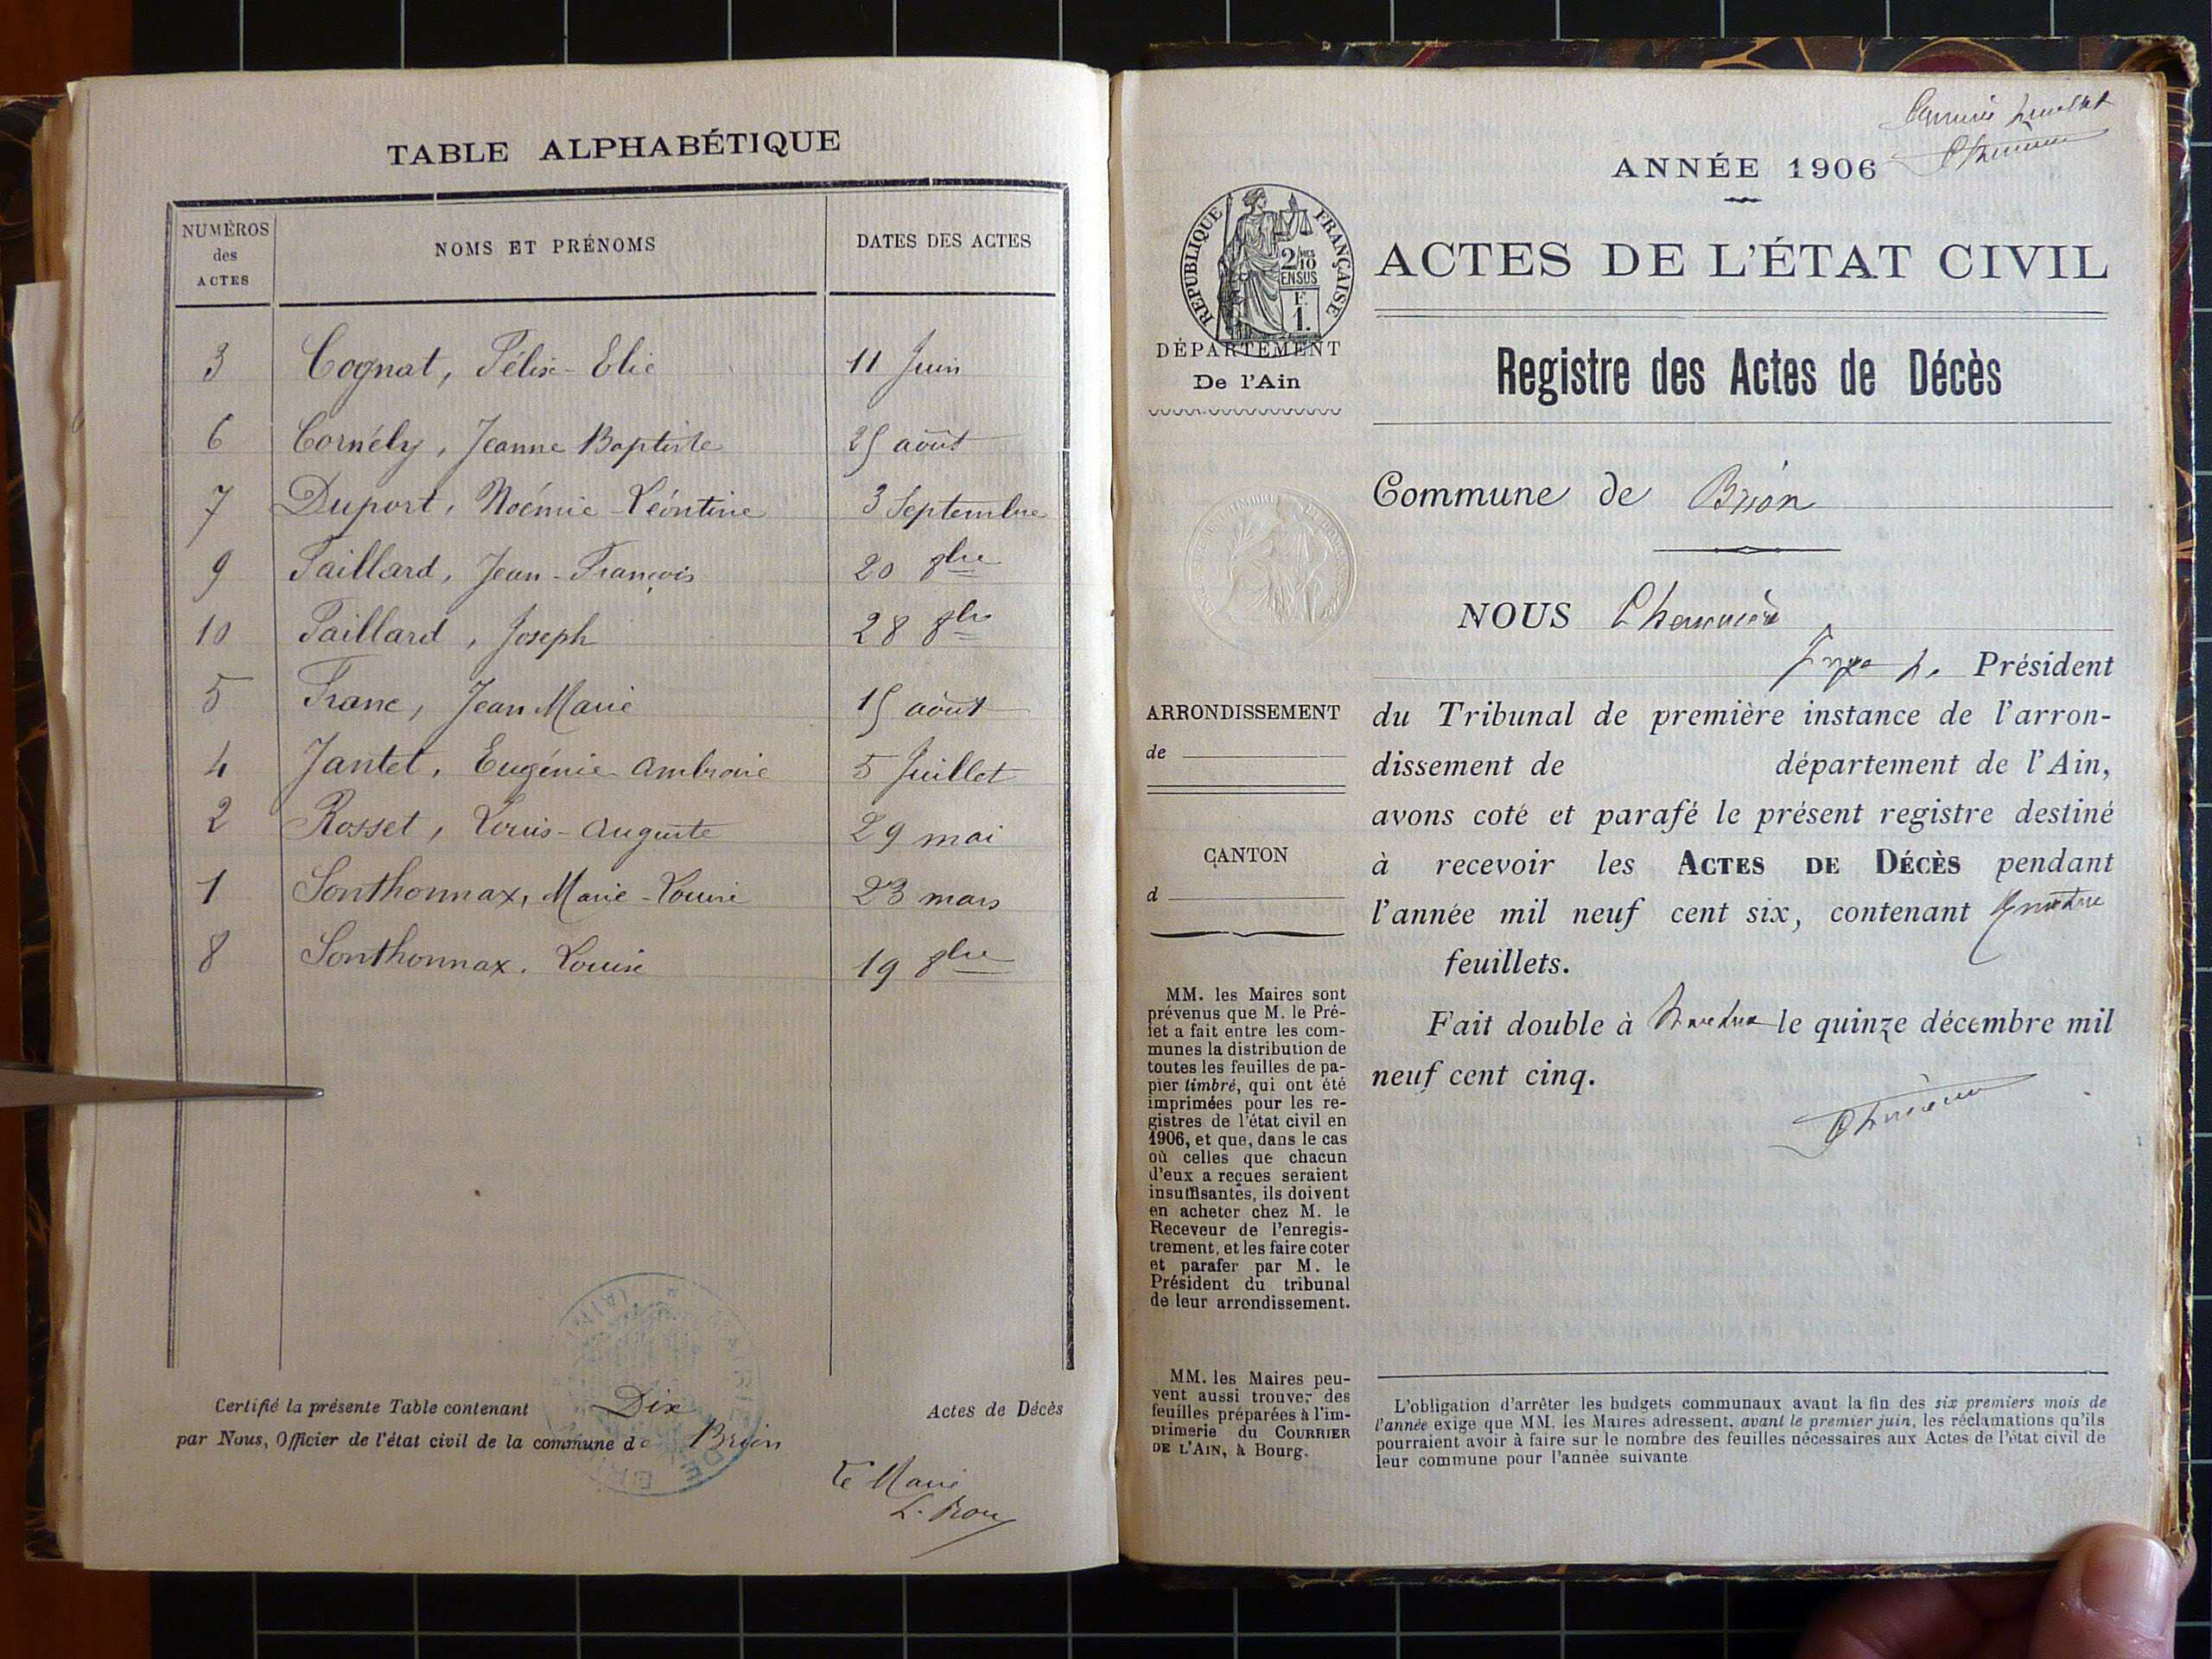 TABLE ALPHABÉTIQUE
NUMÉROS des ACTES
NOMS ET PRÉNOMS
DATES DES ACTES
3 Cognat, Félix-Elie 11 Juin
6 Cornély, Jeanne Baptiste 25 août
7 Duport, Noémie Léontine 3 Septembre
9 Paillard, Jean-François 20 8bre
10 Paillard, Joseph 28 8bre
5 Franc, Jean Marie 15 août
4 Jantet, Eugénie Ambroise 5 Juillet
2 Rosset, Louis-Auguste 29 mai
1 Sonthonnax, Marie-Louise 23 mars
8 Sonthonnax, Louise 19 8bre
Certifié la présente Table contenant Dix Actes de Décès
par Nous, Officier de l'état civil de la commune de Brion
Le Maire
ANNÉE 1906
RÉPUBLIQUE FRANÇAISE
2/10 EN SUS
F. 1.
DÉPARTEMENT
De l'Ain
ARRONDISSEMENT
de
CANTON
d
MM. les Maires sont
prévenus que M. le Pré-
fet a fait entre les com-
munes la distribution de
toutes les feuilles de pa-
pier timbré, qui ont été
imprimées pour les re-
gistres de l'état civil en
1906, et que, dans le cas
où celles que chacun
d'eux a reçues seraient
insuffisantes, ils doivent
en acheter chez M. le
Receveur de l'enregis-
trement, et les faire coter
et parafer par M. le
Président du tribunal
de leur arrondissement.
MM. les Maires peu-
vent aussi trouver des
feuilles préparées à l'im-
primerie du COURRIER
DE L'AIN, à Bourg.
ACTES DE L'ÉTAT CIVIL
Registre des Actes de Décès
Commune de Brion
NOUS
Président
du Tribunal de première instance de l'arron-
dissement de département de l'Ain,
avons coté et parafé le présent registre destiné
à recevoir les ACTES DE DÉCÈS pendant
l'année mil neuf cent six, contenant quatre
feuillets.
Fait double à Nantua le quinze décembre mil
neuf cent cinq.
L'obligation d'arrêter les budgets communaux avant la fin des six premiers mois de
l'année exige que MM. les Maires adressent, avant le premier juin, les réclamations qu'ils
pourraient avoir à faire sur le nombre des feuilles nécessaires aux Actes de l'état civil de
leur commune pour l'année suivante